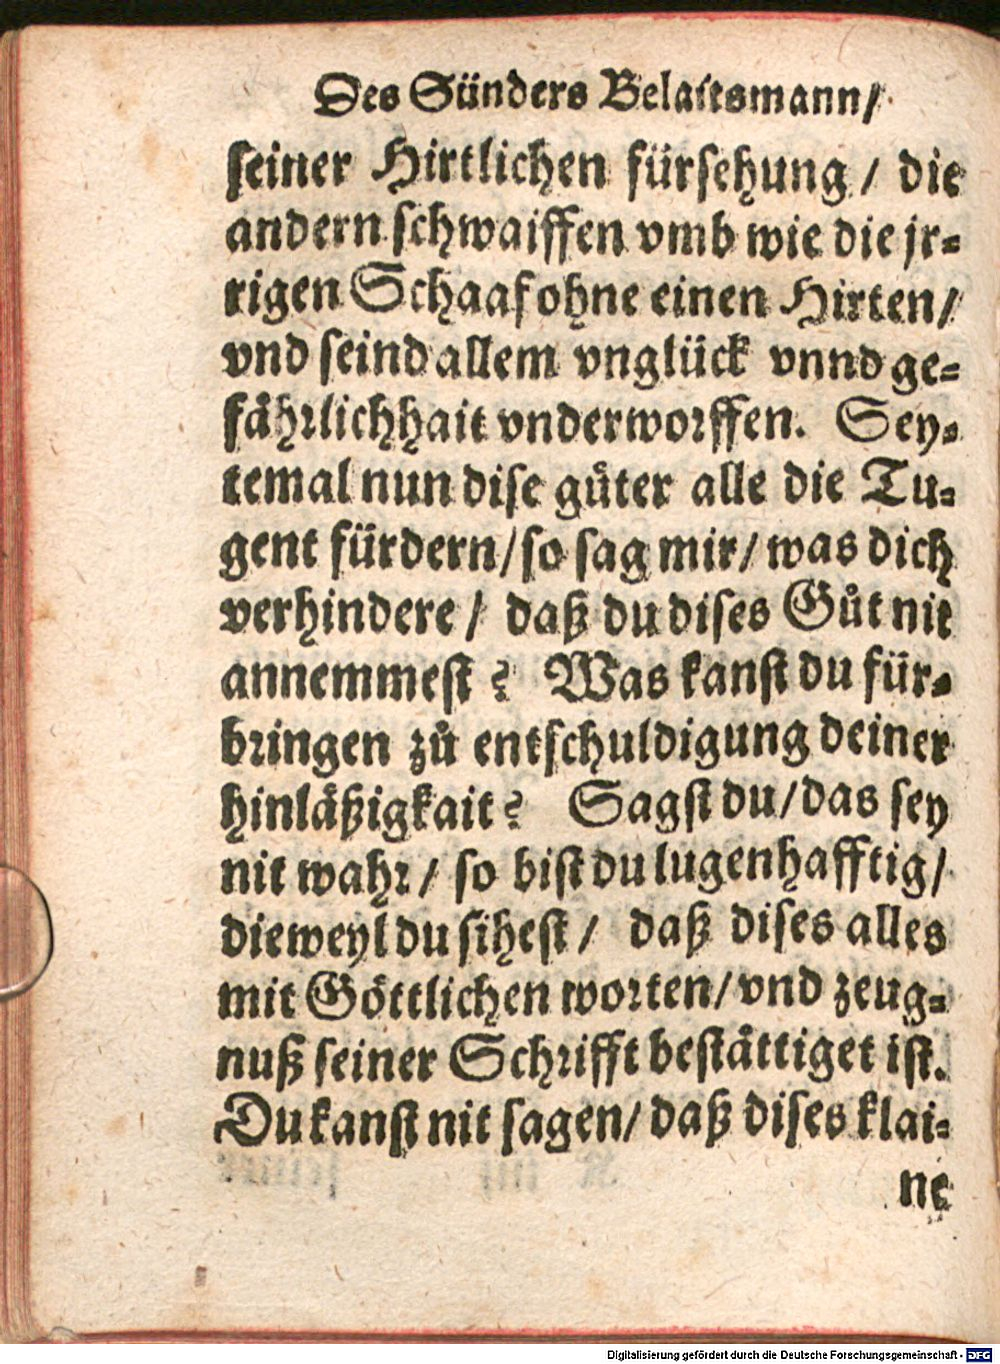 Des Sünders Belaitsmann/
seiner Hirtlichen fürsehung / die
andern schwaiffen vmb wie die jr-
rigen Schaaf ohne einen Hirten/
vnd seind allem vnglück vnnd ge-
fährlichhait vnderworffen. Sey-
temal nun dise gůter alle die Tu-
gent fürdern/ so sag mir/ was dich
verhindere / daß du dises Gůt nit
annemmest? Was kanst du für-
bringen zů entschuldigung deiner
hinläßigkait? Sagst du/ das sey
nit wahr/ so bist du lugenhafftig/
dieweyl du sihest / daß dises alles
mit Göttlichen worten/ vnd zeug-
nuß seiner Schrifft bestättiget ist.
Du kanst nit sagen/ daß dises klai-
ne
Digitalisierung gefördert durch die Deutsche Forschungsgemeinschaft - DFG